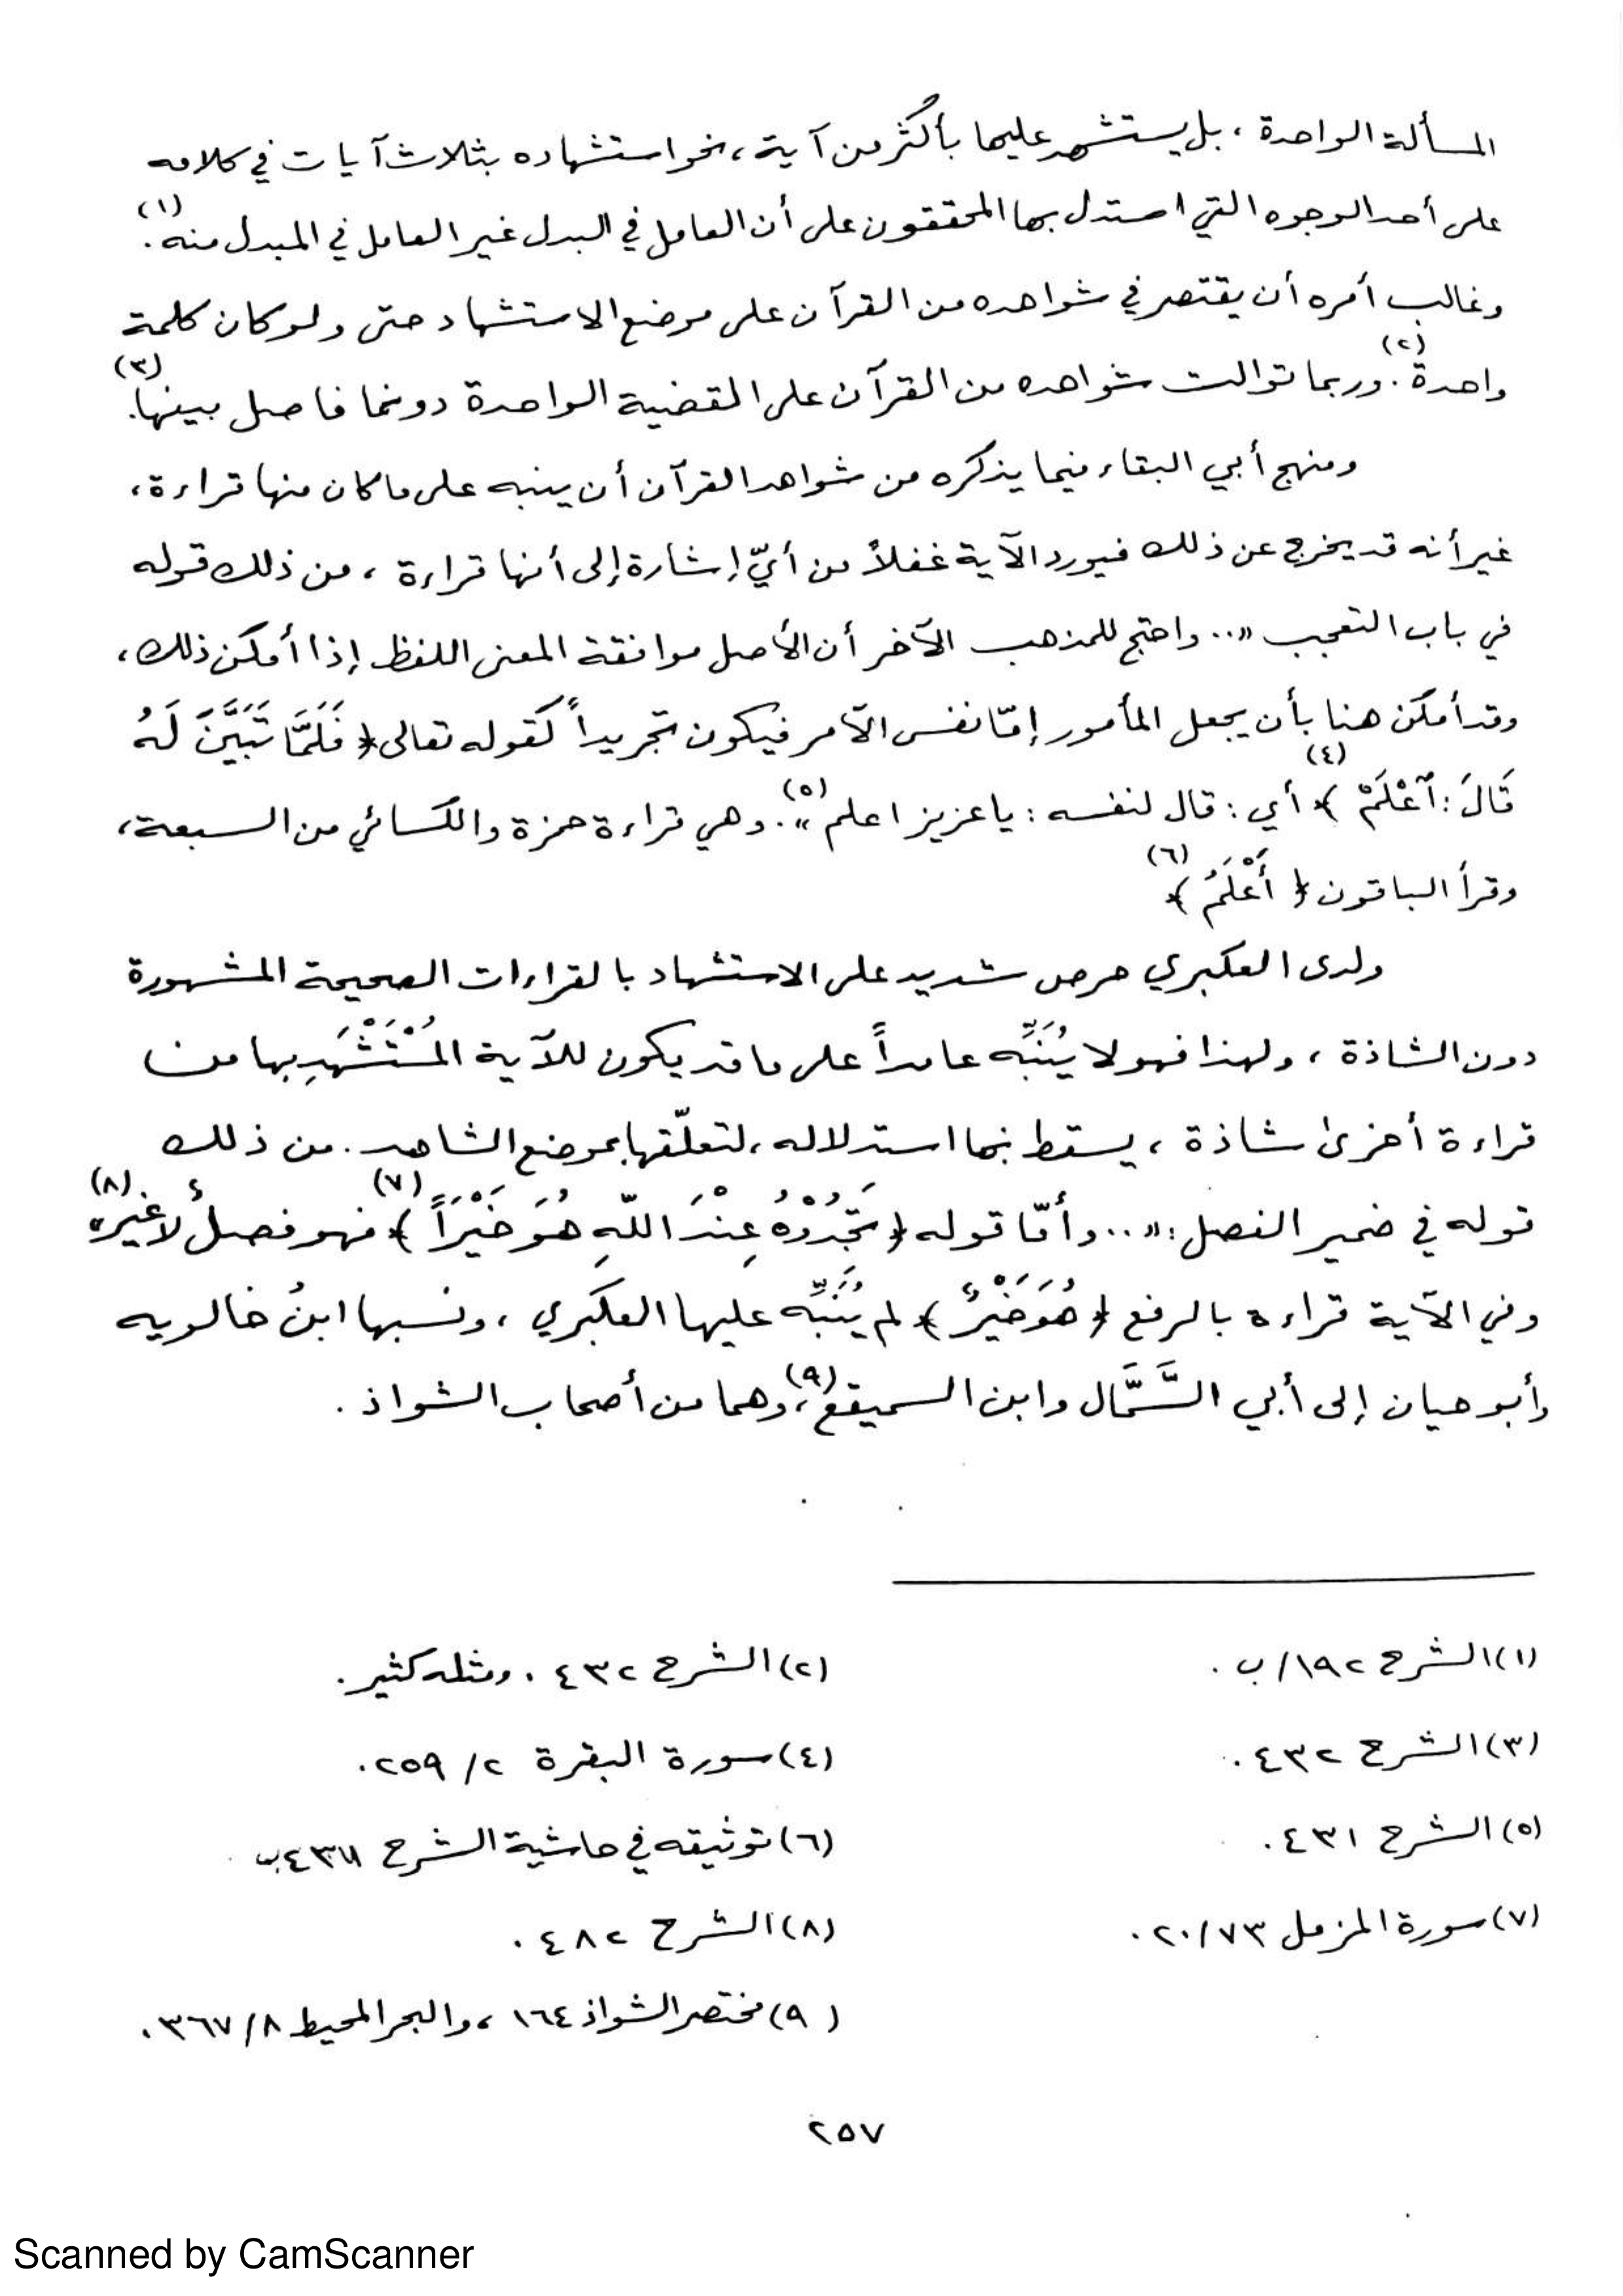 المسألة الواحدة ، بل يستشهد عليها بأكثر من آية ، نحو استشهاده بثلاث آيات في كلامه
على أحد الوجوه التي استدل بها المحققون على أن العامل في البدل غير العامل في المبدل منه (١).
وغالب أمره أن يقتصر في شواهده من القرآن على موضع الاستشهاد حتى ولو كان كلمة
واحدة (٢). وربما توالت شواهده من القرآن على القضية الواحدة دونما فاصل بينها (٣).
ومنهج أبي البقاء فيما يذكره من شواهد القرآن أن ينبه على ما كان منها قراءة ،
غير أنه قد يخرج عن ذلك فيورد الآية غفلاً من أيّ إشارة إلى أنها قراءة ، من ذلك قوله
في باب التعجب «.. واحتج للمذهب الآخر أن الأصل موافقة المعنى اللفظ إذا أمكن ذلك ،
وقد أمكن هنا بأن يجعل المأمور إمّا نفس الآمر فيكون تجريداً كقوله تعالى ﴿ فَلَمَّا تَبَيَّنَ لَهُ
قَالَ : ٱعْلَمْ ﴾ (٤) أي : قال لنفسه : يا عزيز اعلم » (٥). وهي قراءة حمزة والكسائي من السبعة ،
وقرأ الباقون ﴿ أَعْلَمُ ﴾ (٦)
ولدى العكبري حرص شديد على الاستشهاد بالقراءات الصحيحة المشهورة
دون الشاذة ، ولهذا فهو لا يُنَبِّه عامداً على ما قد يكون للآية المُسْتَشْهَدِ بها من
قراءة أخرى شاذة ، يسقط بها استدلاله ، لتعلّقها بموضع الشاهد . من ذلك
قوله في ضمير الفصل : «.. وأمّا قوله ﴿ تَجِدُوْهُ عِنْدَ اللّهِ هُوَ خَيْرَاً ﴾ (٧) فهو فصلٌ لا غير» (٨)
وفي الآية قراءة بالرفع ﴿ هُوَ خَيْرٌ ﴾ لم يُنَبِّه عليها العكبري ، ونسبها ابنُ خالويه
وأبو حيان إلى أبي السَّمَّال وابن السميقع (٩)، وهما من أصحاب الشواذ .
(١) الشرح ١٩٢/ ب .
(٢) الشرح ٤٣٢ . ومثله كثير .
(٣) الشرح ٤٣٢ .
(٤) سورة البقرة ٢/ ٢٥٩ .
(٥) الشرح ٤٣١ .
(٦) توثيقه في حاشية الشرح
(٧) سورة المزمل ٢٠/٧٣ .
(٨) الشرح ٤٨٢ .
(٩) مختصر الشواذ ١٦٤ ، والبحر المحيط ٨/ ٣٦٧ .
٢٥٧
Scanned by CamScanner